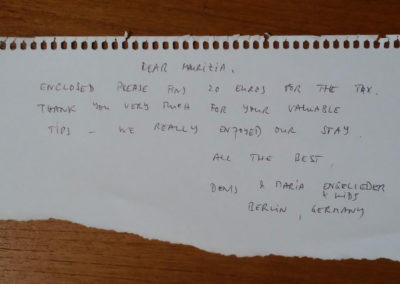 DEAR MAURIZIA,
ENCLOSED PLEASE FIND 20 EUROS FOR THE TAX.
THANK YOU VERY MUCH FOR YOUR VALUABLE
TIPS - WE REALLY ENJOYED OUR STAY.
ALL THE BEST,
& MARIA ENGELIEDER
+ KIDS
BERLIN, GERMANY